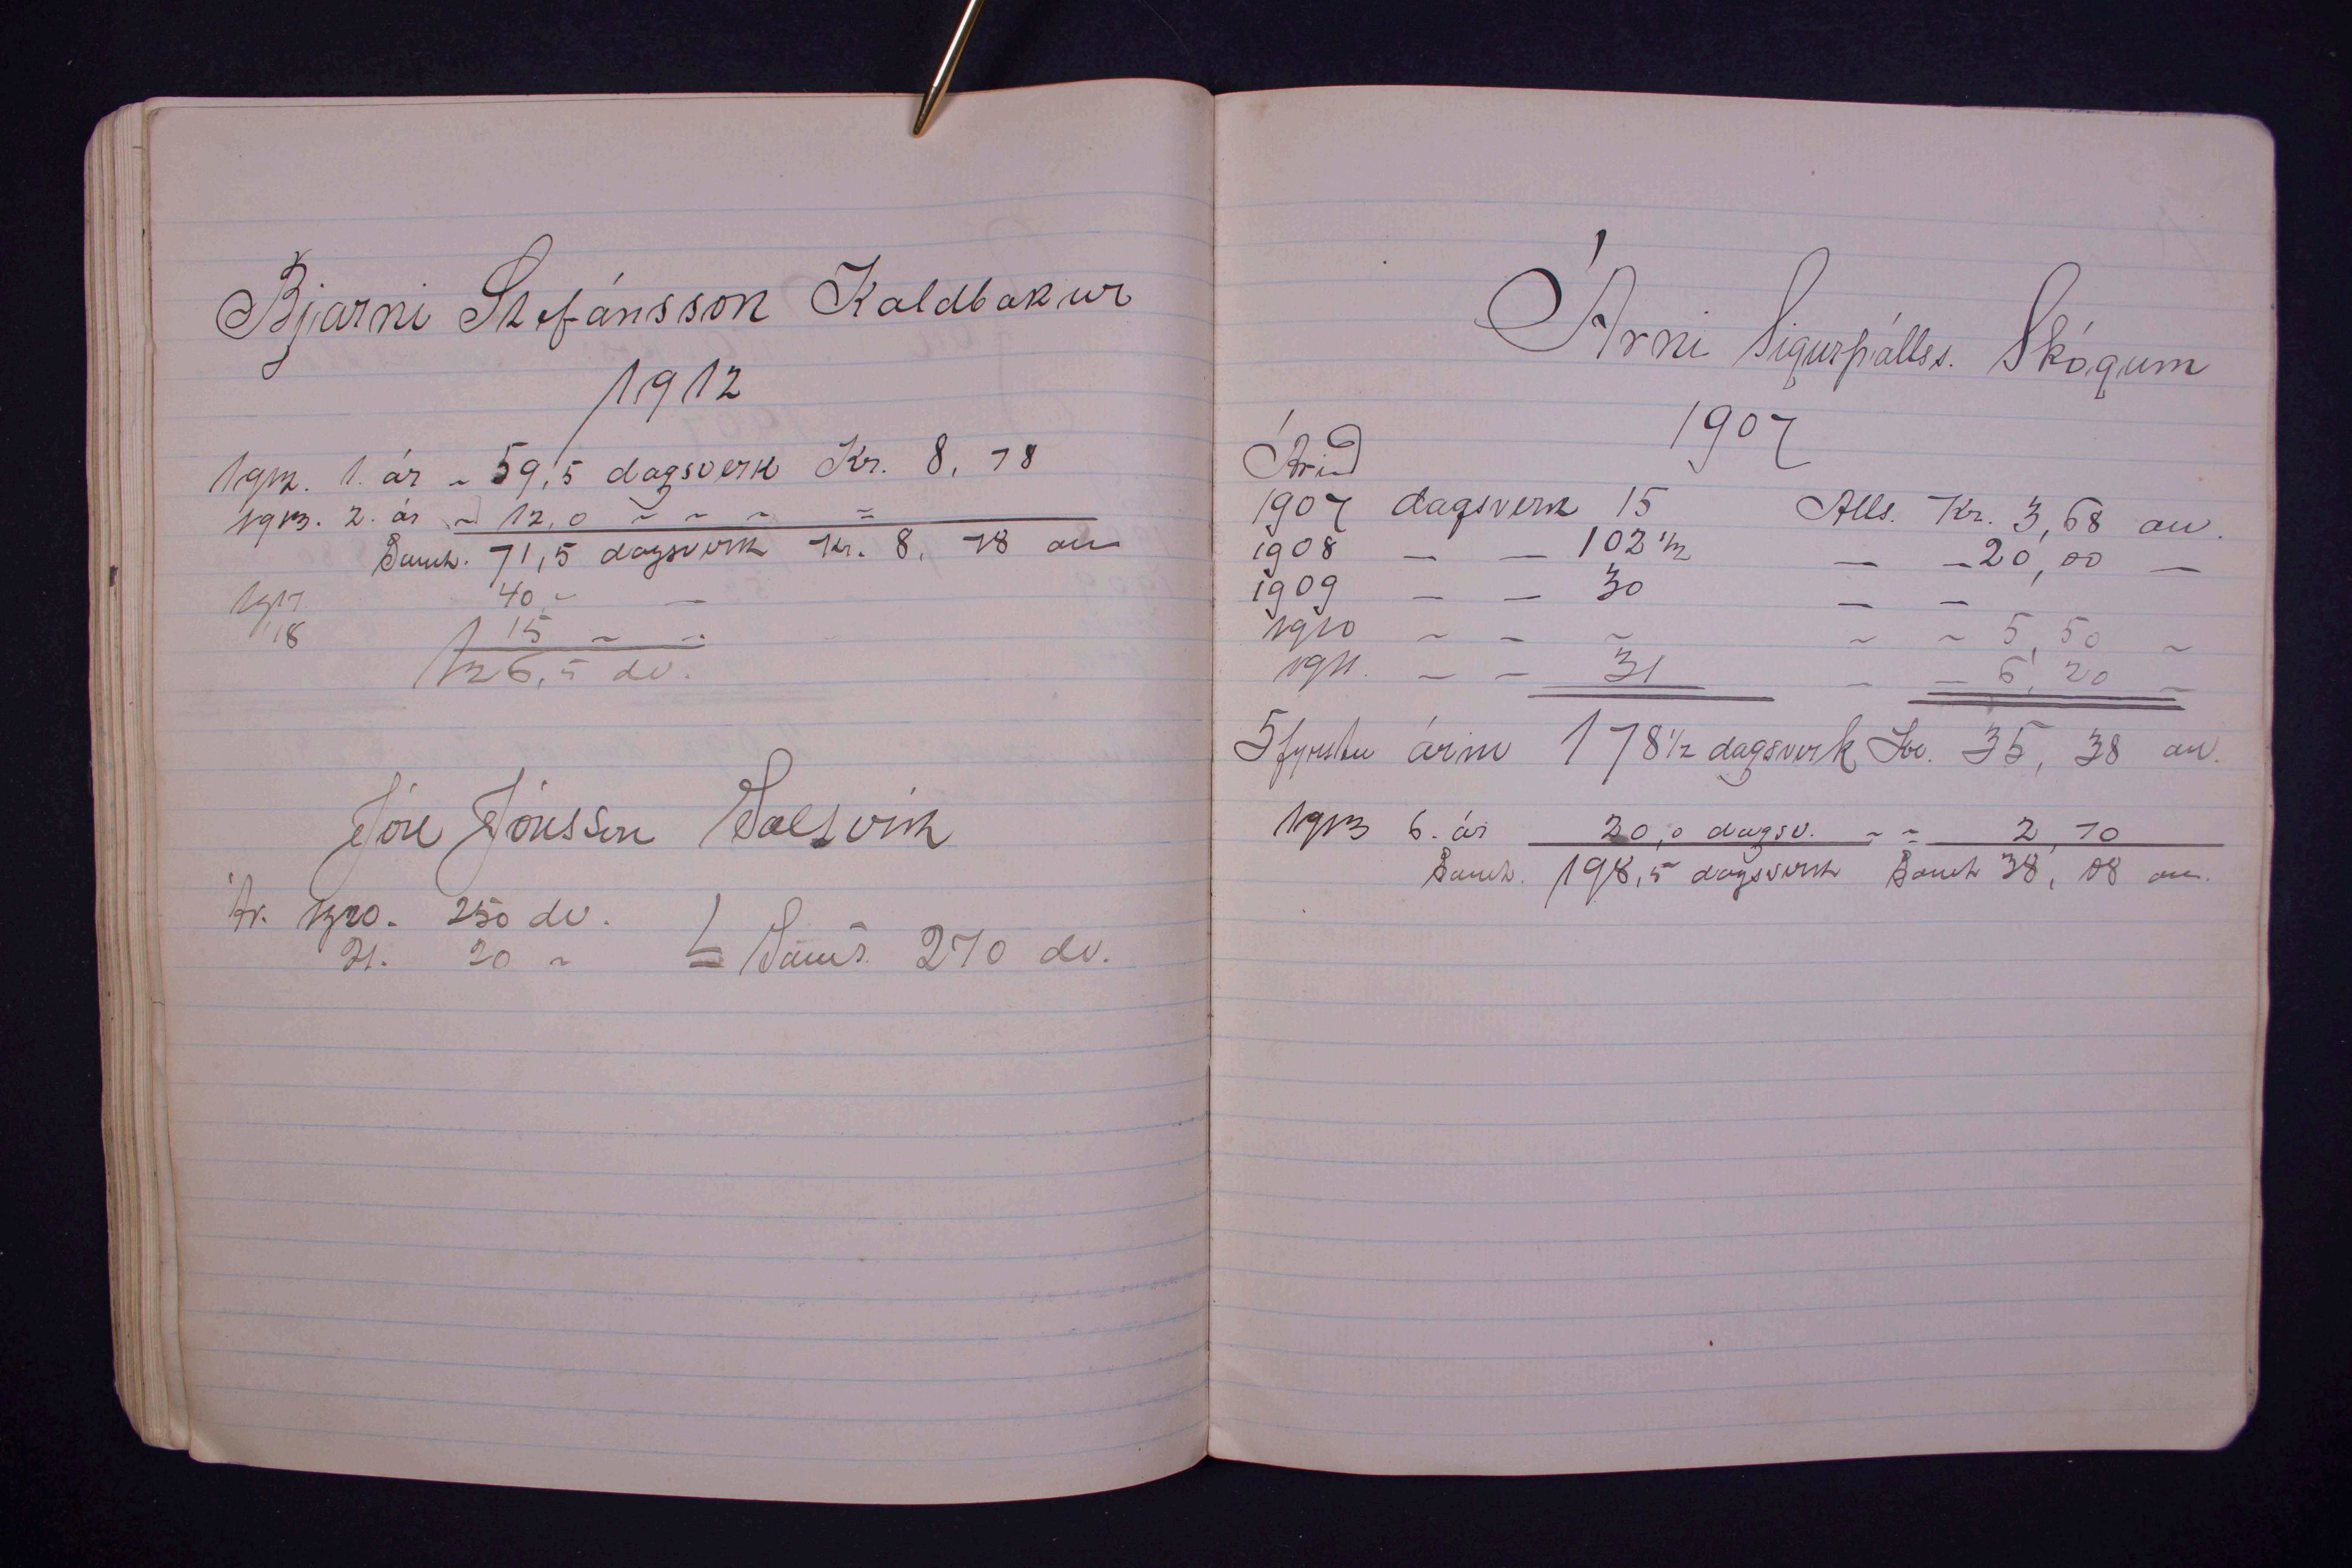 Bjarni Stefánsson Kaldbakur
1912
1912. 1. ár ~ 59,5 dagsverk Kr. 8, 78
1913. 2. ár ~ 12,0 ~ ~ ~ =
Samt. 71,5 dagsverk Kr. 8, 78 au
1917 40,~ —
'18 15 ~ ~
126,5 dv.
Jón Jónsson Saltvík
Ár. 1920. 250 dv.
21. 20 ~ = Samt. 270 dv.
Árni Sigurpálss. Skógum
1907
Árið
1907 dagsverk 15 Alls. Kr. 3,68 au.
1908 — — 102 1/2 — — 20,00 —
1909 — — 30 — —
1910 ~ — ~ ~ ~ 5,50 ~
1911. — — 31 — — 6,20 —
5 fyrstu árin 178 1/2 dagsverk Kr. 35, 38 au.
1913 6. ár 20,0 dagsv. ~ = 2,70
Samt. 198,5 dagsverk Samt 38, 08 au.